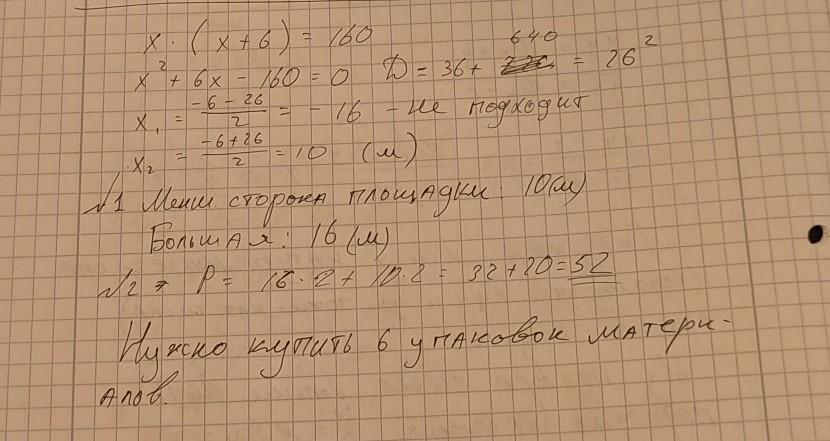 x · (x + 6) = 160
x² + 6x - 160 = 0 D = 36 + 640 = 26²
x₁ = (-6 - 26)/2 = -16 - не подходит
x₂ = (-6 + 26)/2 = 10 (м)
№1 Менш. сторона площадки: 10(м)
Большая: 16 (м)
№2 P = 16 · 2 + 10 · 2 = 32 + 20 = 52
Нужно купить 6 упаковок матери-
алов.